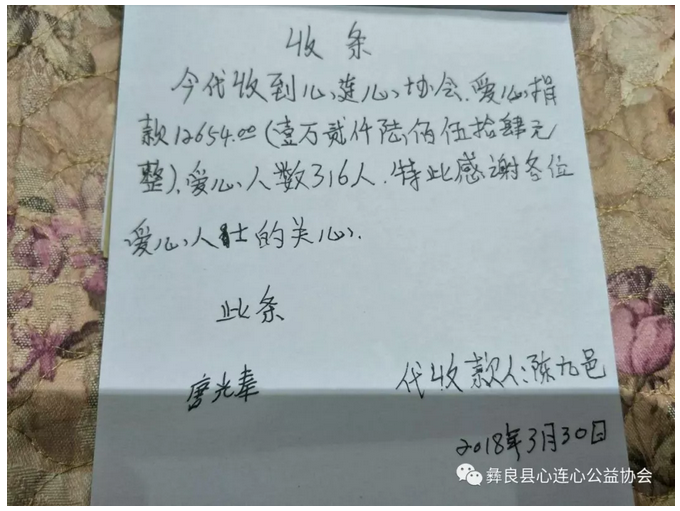 收条
今代收到心连心协会.爱心捐
款12654.00(壹万贰仟陆佰伍拾肆元
整).爱心人数316人.特此感谢各位
爱心人士的关心.
此条
代收款人:陈九邑
2018年3月30日
彝良县心连心公益协会